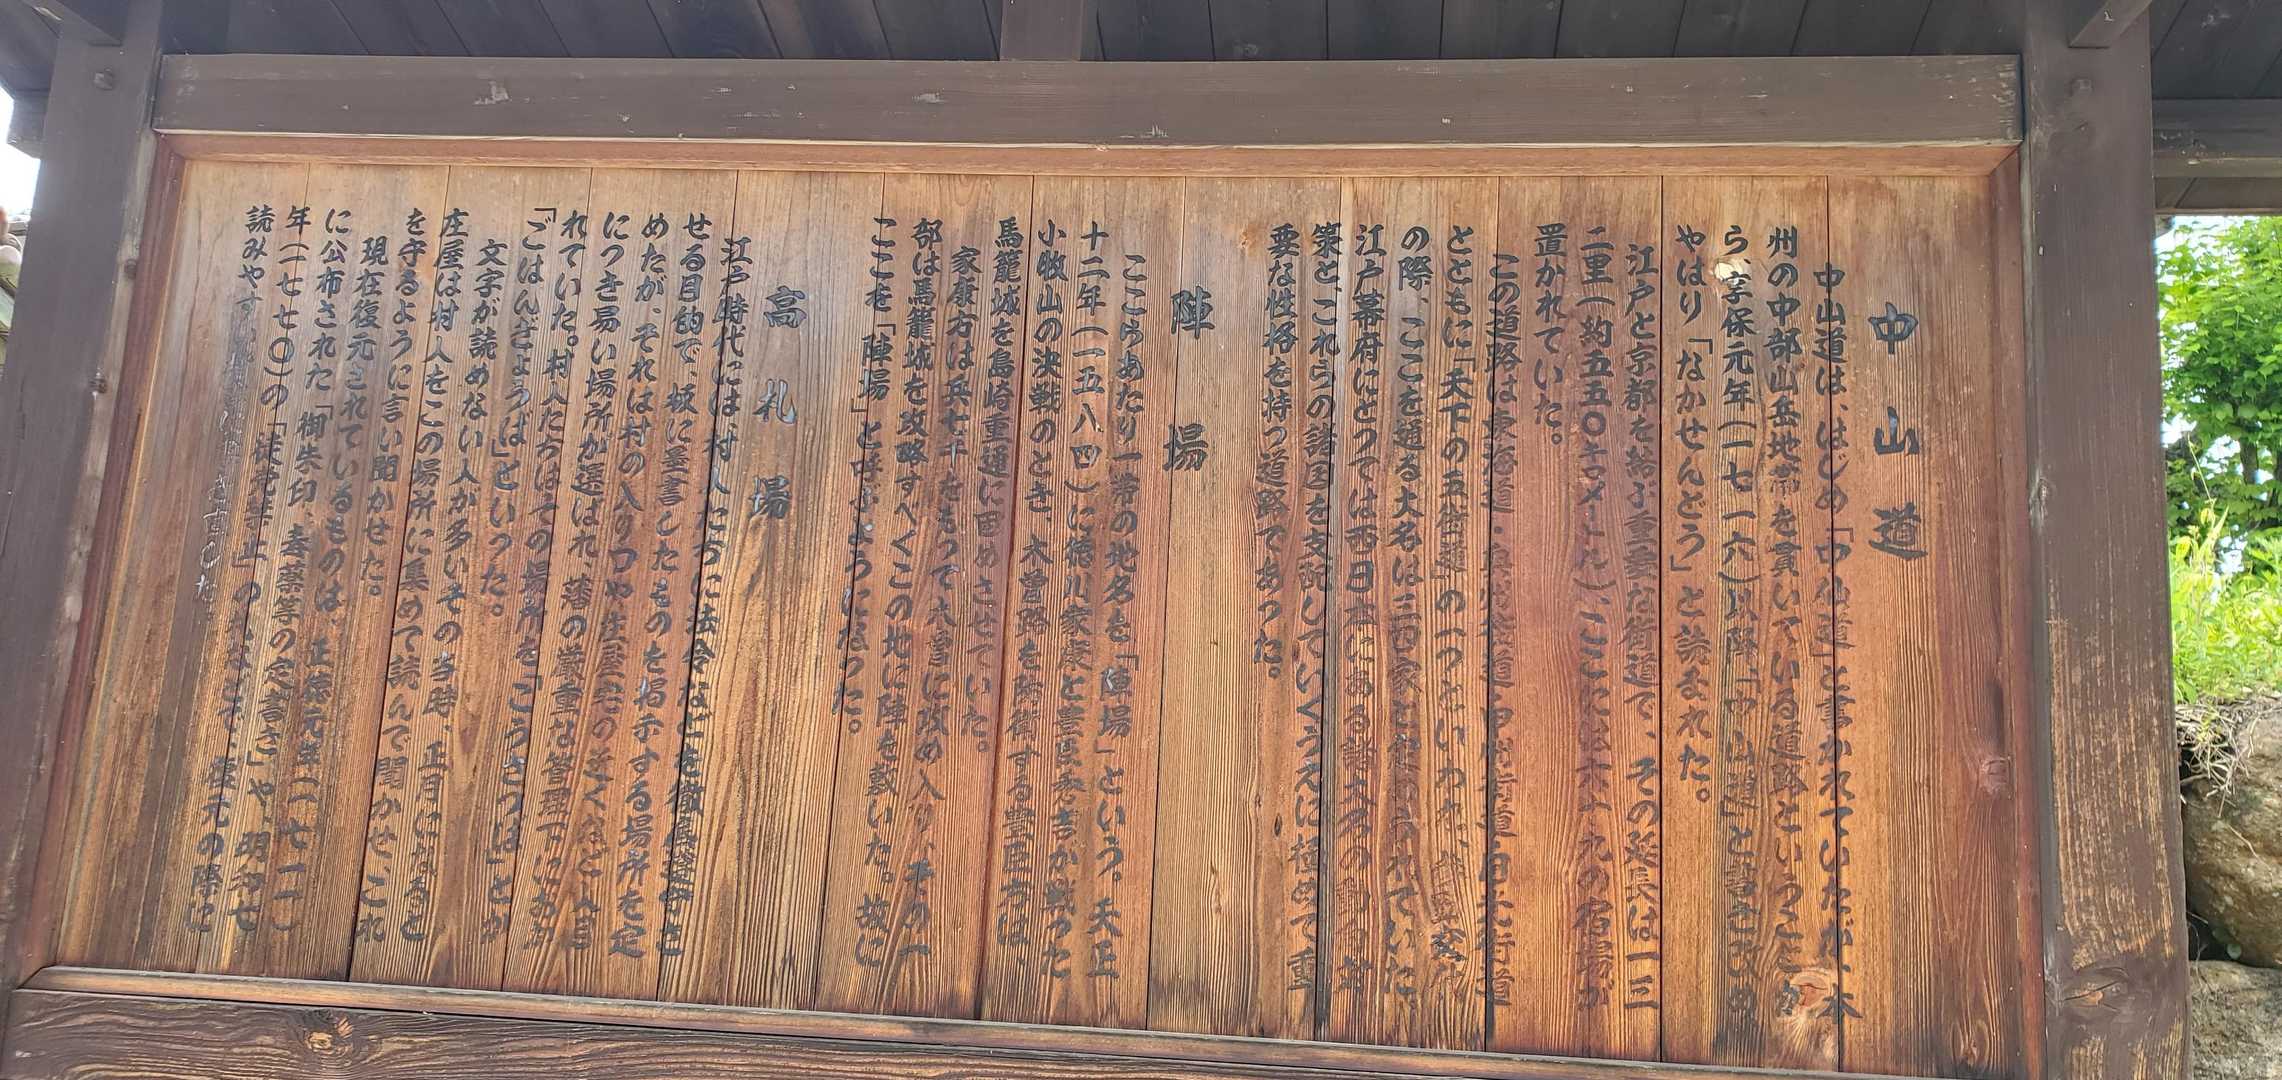 中山道
中山道は、はじめ「中仙道」と書かれていたが、本
州の中部山岳地帯を貫いている道路ということか
ら、享保元年(一七一六)以降「中山道」と書き改め
やはり「なかせんどう」と読まれた。
江戸と京都を結ぶ重要な街道で、その延長は一三
二里(約五五〇キロメートル)、ここに六十九の宿場が
置かれていた。
この道路は東海道・奥州街道・甲州街道・日光街道
とともに「天下の五街道」の一つといわれ、
の際、ここを通る大名は三四家と
江戸幕府にとっては西日本にある諸大名の動き対
策と、これらの諸国を支配していくうえに極めて重
要な性格を持つ道路であった。
陣場
ここらあたり一帯の地名を「陣場」という。天正
十二年(一五八四)に徳川家康と豊臣秀吉が戦った
小牧山の決戦のとき、木曽路を防衛する豊臣方は、
馬籠城を島崎重通に固めさせていた。
家康方は兵七千をもって木曽に攻め入り、その一
部は馬籠城を攻略すべくこの地に陣を敷いた。故に
ここを「陣場」と呼ぶようになった。
高札場
江戸時代には、村人たちに法令などを徹底させ
せる目的で、板に墨書したものを掲示する場所を定
めたが、それは村の入り口や庄屋宅の近くなど人目
につき易い場所が選ばれ、藩の厳重な管理下におか
れていた。村人たちはその場所を「こうさつば」とか
「ごはんぎょうば」といった。
文字が読めない人が多いその当時、正月になると
庄屋は村人をこの場所に集めて読んで聞かせ、これ
を守るように言い聞かせた。
現在復元されているものは、正徳元年(一七一一)
に公布された「御朱印、毒薬等の定書き」や、明和七
年(一七七〇)の「徒党禁止」の 復元の際に
読みやす